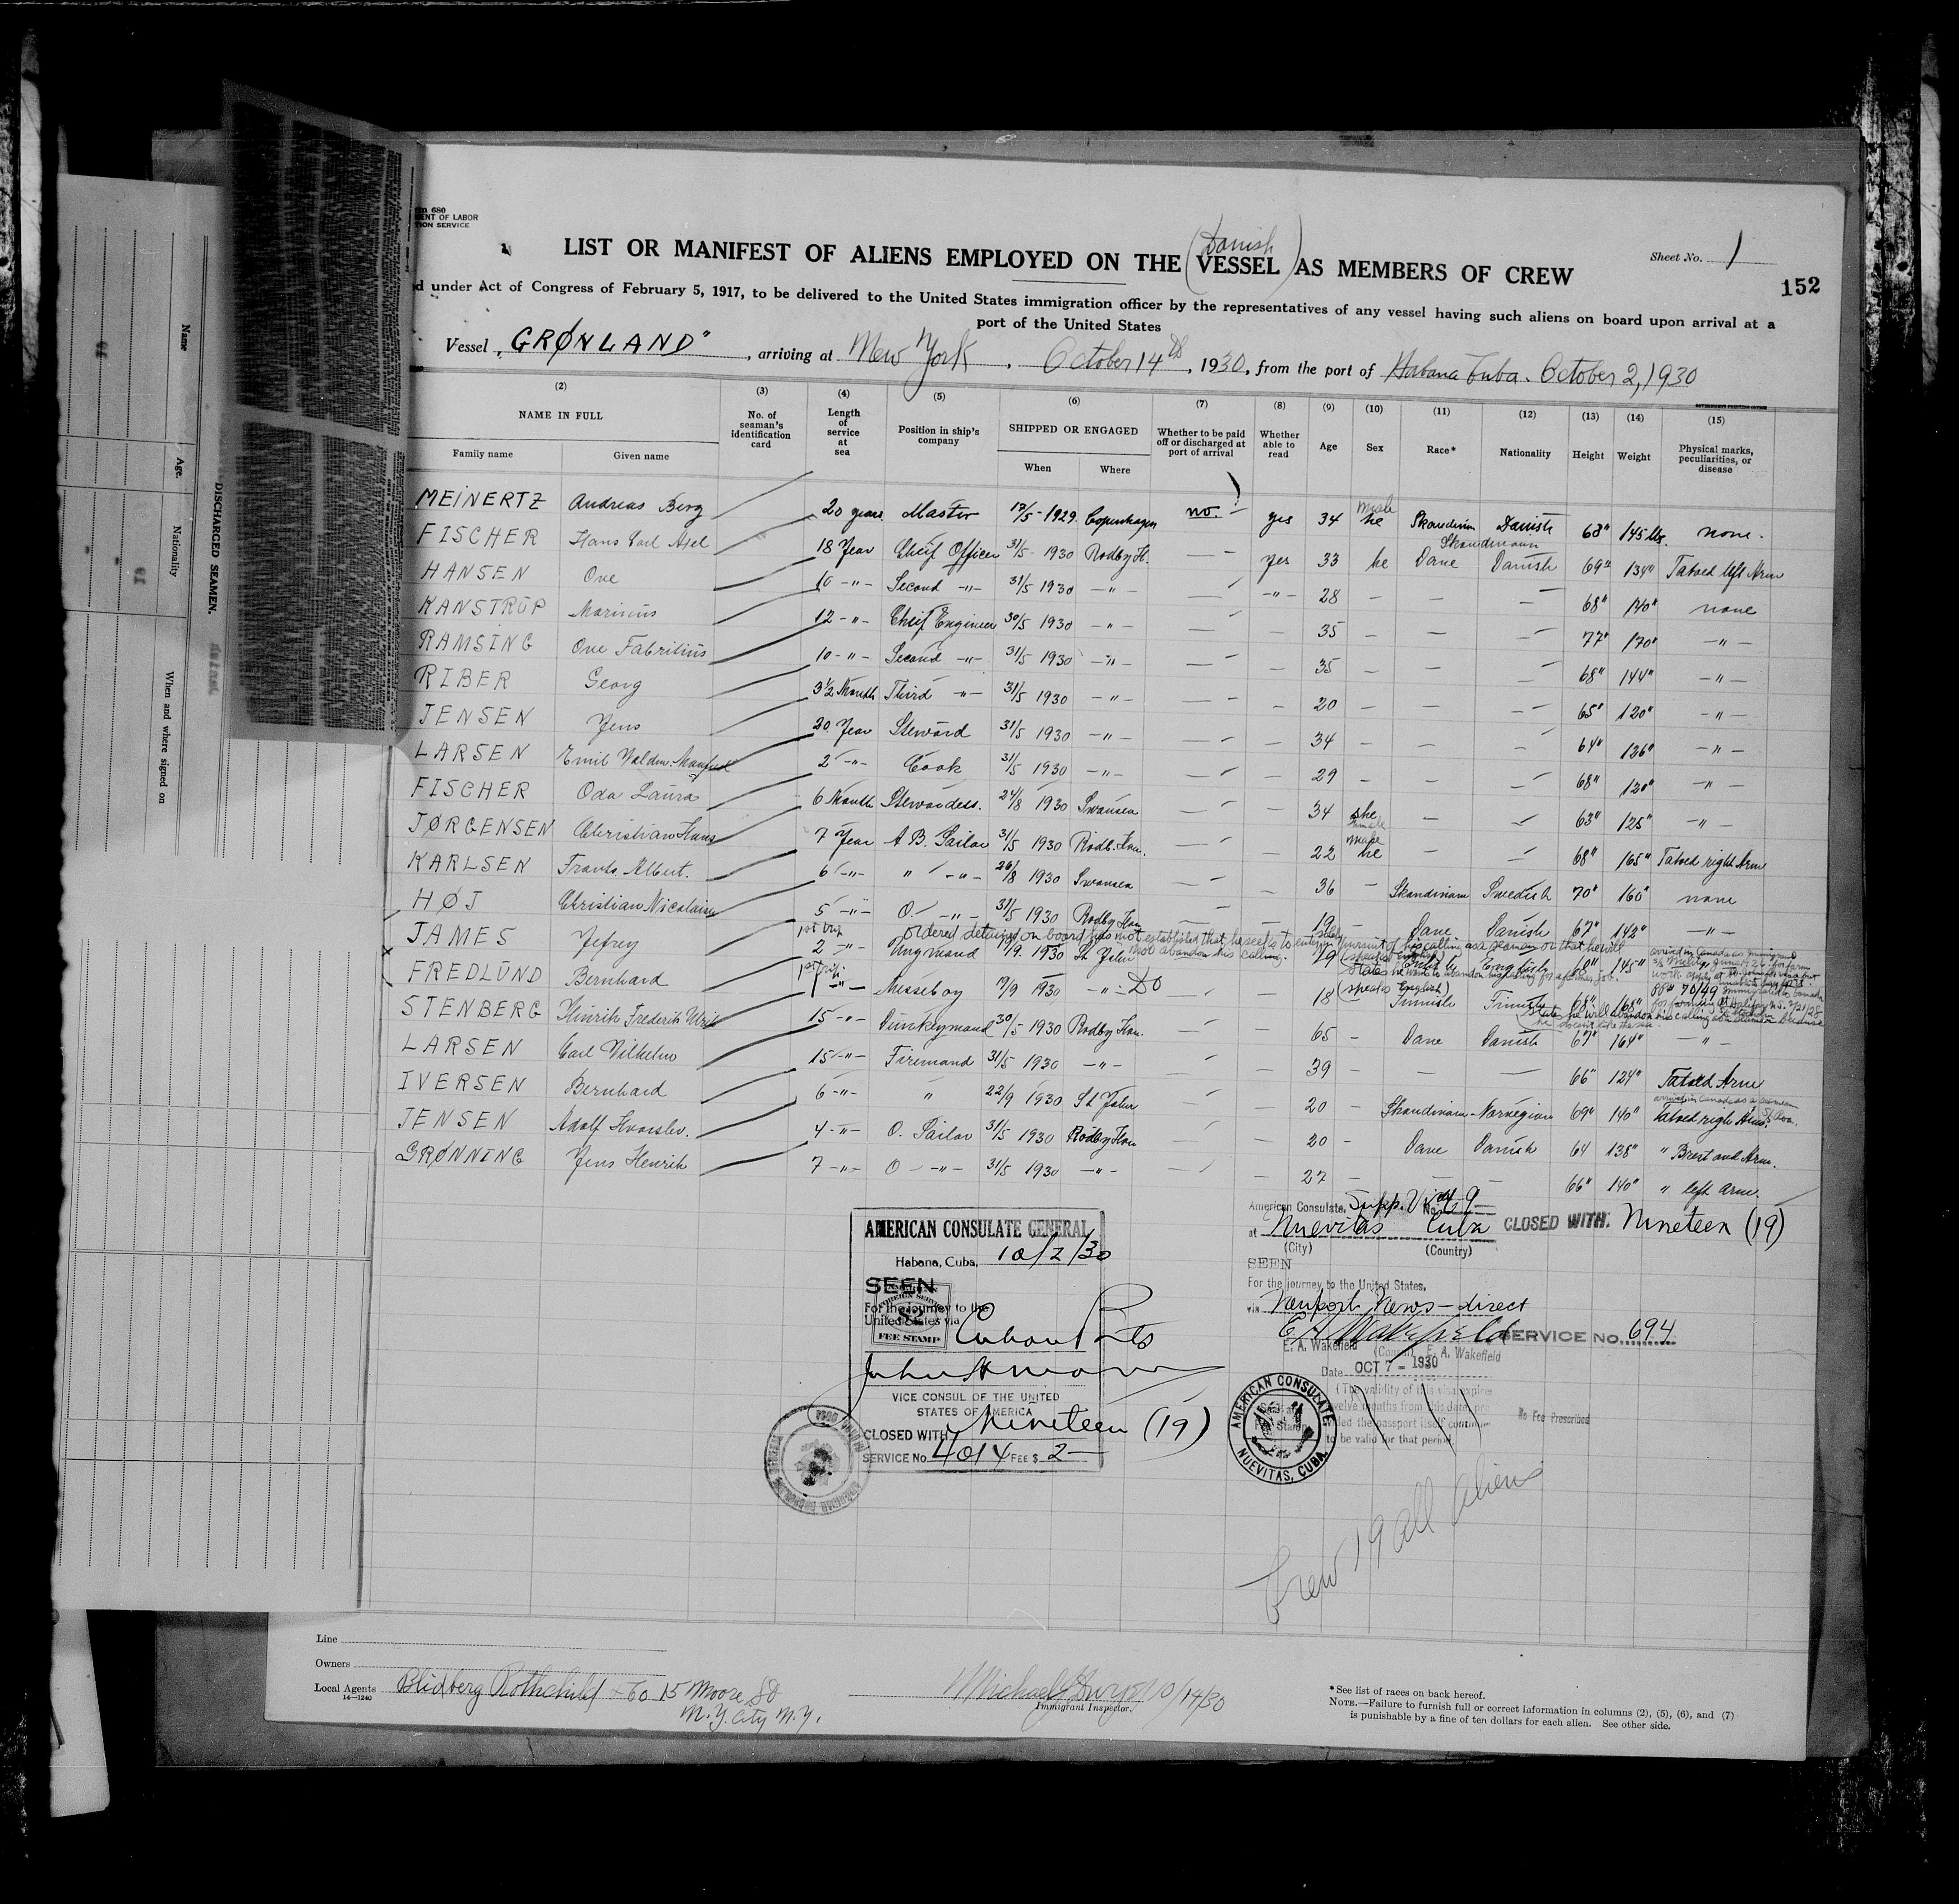 680
ENT OF LABOR
TION SERVICE
LIST OR MANIFEST OF ALIENS EMPLOYED ON THE (Danish VESSEL) AS MEMBERS OF CREW
Sheet No. 1
152
d under Act of Congress of February 5, 1917, to be delivered to the United States immigration officer by the representatives of any vessel having such aliens on board upon arrival at a
port of the United States
Vessel „GRØNLAND", arriving at New York, October 14th, 1930, from the port of Habana Cuba. October 2, 1930
(2) (3) (4) (5) (6) (7) (8) (9) (10) (11) (12) (13) (14) (15)
NAME IN FULL Family name Given name No. of seaman's identification card Length of service at sea Position in ship's company SHIPPED OR ENGAGED When Where Whether to be paid off or discharged at port of arrival Whether able to read Age Sex Race* Nationality Height Weight Physical marks, peculiarities, or disease
MEINERTZ Andreas Berg 20 years Master 1929 Copenhagen no. yes 34 male he Danish 68" 145 lbs. none.
FISCHER Hans Carl Axel 18 Year Cheif Officer 31/5-1930 Rodby H. — yes 33 he Dane Danish 69" 134" Tatoed left Arm
HANSEN Ove 10 -"- Second -"- 31/5 1930 -"- — -"- 28 — — — 68" 140" none
KANSTRUP Marinus 12 -"- Cheif Engineer 30/5 1930 -"- — — 35 — — — 77" 170" -"-
RAMSING Ove Fabritius 10 -"- Second -"- 31/5 1930 -"- — — 35 — — — 68" 144" -"-
RIBER Georg 3½ Month Third -"- 31/5 1930 -"- — — 20 — — — 65" 120" -"-
JENSEN Jens 20 Year Steward 31/5 1930 -"- — — 34 — — — 64" 126" -"-
LARSEN Emil Valdm. 2 -"- Cook 31/5 1930 -"- — — 29 — — — 68" 120" -"-
FISCHER Oda Laura 6 Month Stewardess. 24/8 1930 Swansea — — 34 she female — — 63" 125" -"-
JØRGENSEN Christian Hans 7 Year A B. Sailor 31/5 1930 Rodb. Hav. — — 22 male he — — 68" 165" Tatoed right Arm
KARLSEN Albert. 6 -"- " -"- 26/8 1930 Swansea — — 36 — Skandinav Swedish 70" 160" none
HØJ Christian Nicolaius 5 -"- O. -"- 31/5 1930 Rodby Hav — — 19 Dane Danish 67" 142" -"-
ordered detained on board has not established that he seeks to enter in pursuit of his calling as a seaman or that he will
not abandon his calling.
JAMES Jefrey 1st trip 2 -"- 1930 St John 19 English 68" 145"
FREDLUND Bernhard 1st trip 1 -"- Messeboy 1930 -"- Do 18 (speaks English) Finnish 68" 168"
STENBERG Hinrik Frederik 15 -"- Dunkeymand 30/5 1930 Rodby Hav. — — 65 — Dane Danish 67" 164" -"-
LARSEN Carl Vilhelm 15 -"- Firemand 31/5 1930 -"- — — 39 — — — 66" 124" Tatoed Arm
IVERSEN Bernhard 6 -"- " 22/9 1930 St John — — 20 — Skandinav Norvegian 69" 140" Tatoed right Arm.
JENSEN Adolf 4 -"- O. Sailor 31/5 1930 Rodby Hav — — 20 — Dane Danish 64 138" " Brest and Arm.
GRØNNING Jens Henrik 7 -"- O -"- 31/5 1930 -"- — — 27 — — — 66" 140" " left Arm.
AMERICAN CONSULATE GENERAL
Habana, Cuba, 10/2/30
SEEN
For the journey to the
United States via
FEE STAMP
Cuban Ports
VICE CONSUL OF THE UNITED
STATES OF AMERICA
CLOSED WITH Nineteen (19)
SERVICE No. 4014 FEE $ 2—
American Consulate, Supp. Visa No. 9
at Nuevitas Cuba
(City) (Country)
CLOSED WITH: Nineteen (19)
SEEN
For the journey to the United States,
via Newport News – direct
E. A. Wakefield
SERVICE No. 694
E. A. Wakefield (Consul) E. A. Wakefield
Date OCT 7 - 1930
(The validity of this visa expires
twelve months from this date, pro
ded the passport itself continue
to be valid for that period
No Fee Prescribed
AMERICAN CONSULATE
NUEVITAS, CUBA.
Crew 19 all aliens
Line
Owners
Local Agents Blidberg Rothchild Co 15 Moore St
14—1240
N.Y. City N.Y.
Michael J Dwyer 10/14/30
Immigrant Inspector.
*See list of races on back hereof.
NOTE.—Failure to furnish full or correct information in columns (2), (5), (6), and (7)
is punishable by a fine of ten dollars for each alien. See other side.
DISCHARGED SEAMEN.
Name
Age.
Nationality
When and where signed on